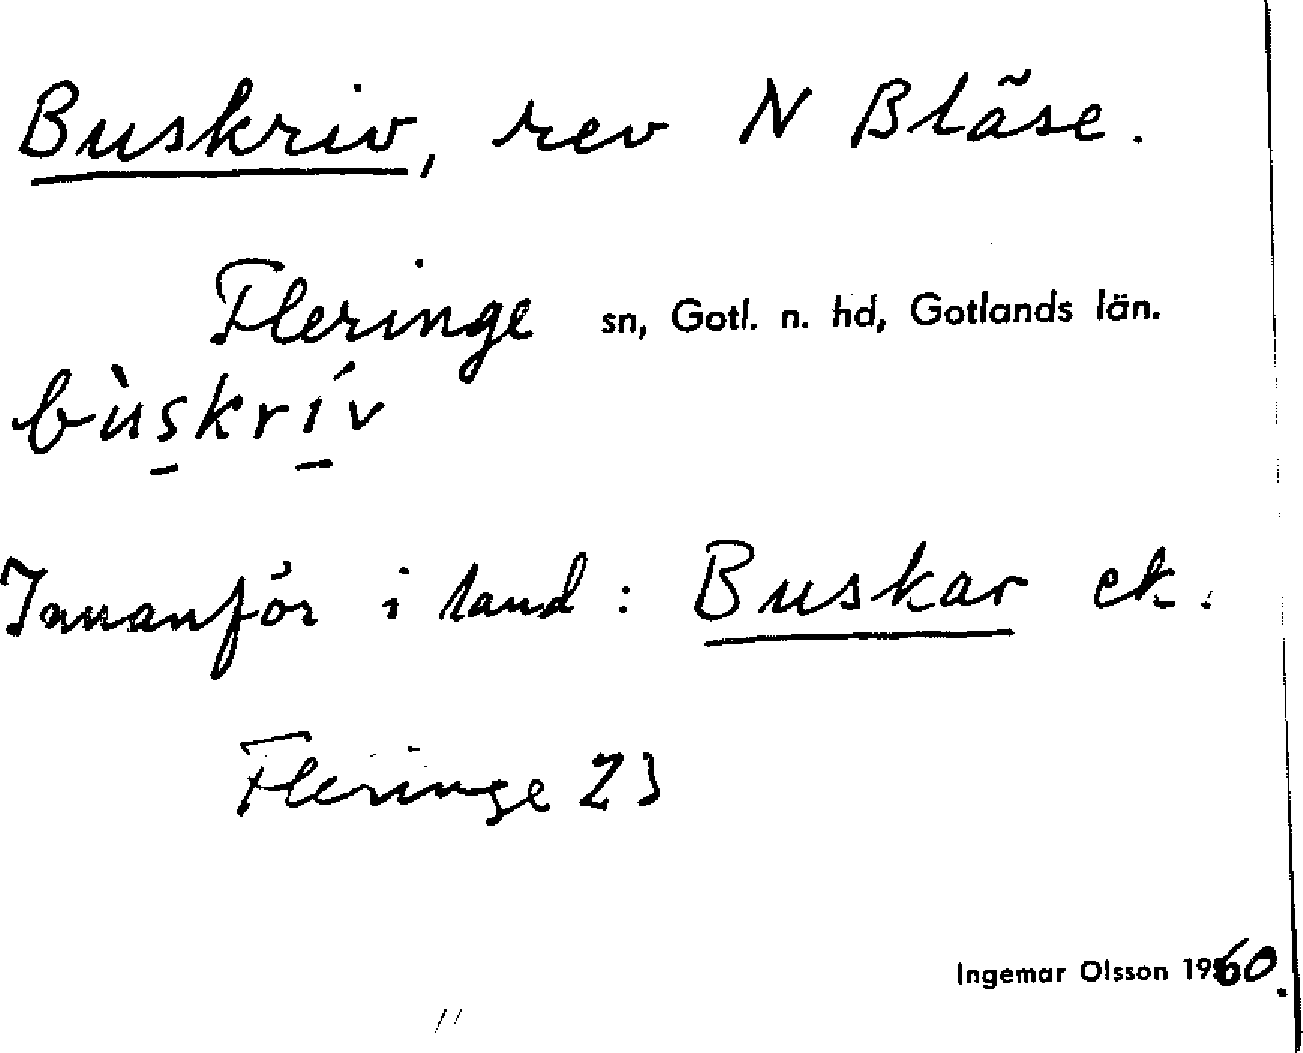 Buskriv, rev N Bläse.
Fleringe sn, Gotl. n. hd, Gotlands län.
bùs̱krí̱v
Innanför i land: Buskar ek.
Fleringe 23
Ingemar Olsson 1960.